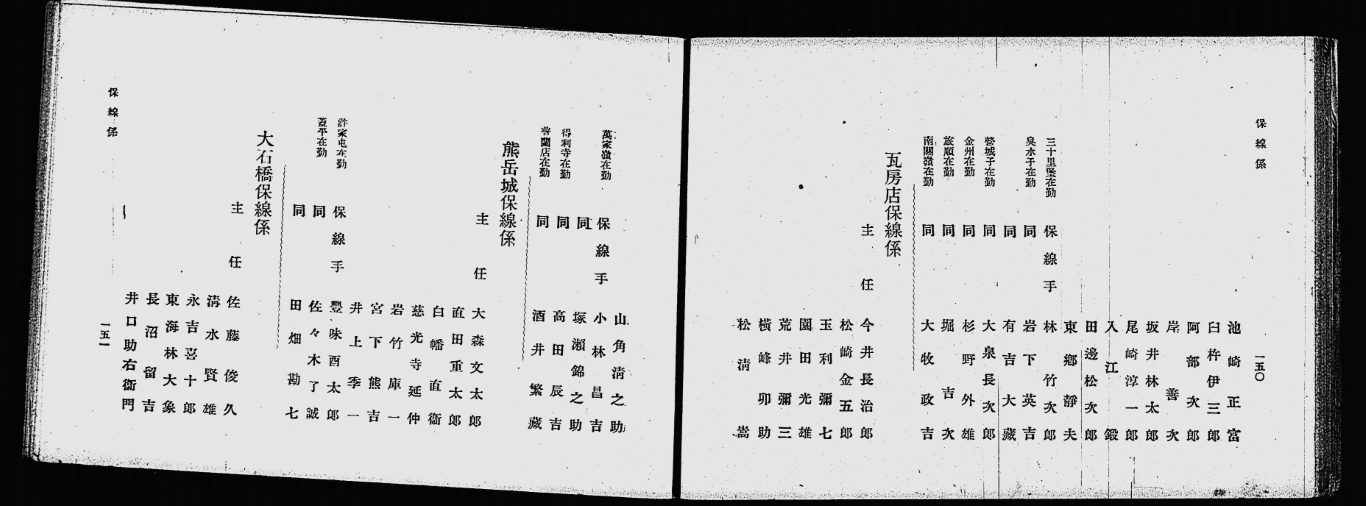 保線係
一五〇
池崎正富
臼杵伊三郎
阿部次郎
岸善次
坂井林太郎
尾崎淳一郎
入江鍛
田邊松次郎
東郷靜夫
三十里堡在勤 保線手 林竹次郎
臭水子在勤 同 岩下英吉
同 有吉大藏
營城子在勤 同 大泉長次郎
金州在勤 同 杉野外雄
旅順在勤 同 堀吉次
南關嶺在勤 同 大牧政吉
瓦房店保線係
主任 今井長治郎
松崎金五郎
玉利彌七
園田光雄
荒井彌三
橫峰卯助
松淸嵩
山角淸之助
萬家嶺在勤 保線手 小林昌吉
同 塚瀨錦之助
得利寺在勤 同 高田辰吉
普蘭店在勤 同 酒井繁藏
熊岳城保線係
主任 大森文太郎
直田重太郎
白幡直衞
慈光寺延仲
岩竹庫一
宮下熊吉
井上季一
許家屯在勤 保線手 豐味酉太郎
蓋平在勤 同 佐々木了誠
同 田畑勘七
大石橋保線係
主任 佐藤俊久
淸水賢雄
永吉喜十郎
東海林大象
長沼留吉
井口助右衞門
保線係
一五一